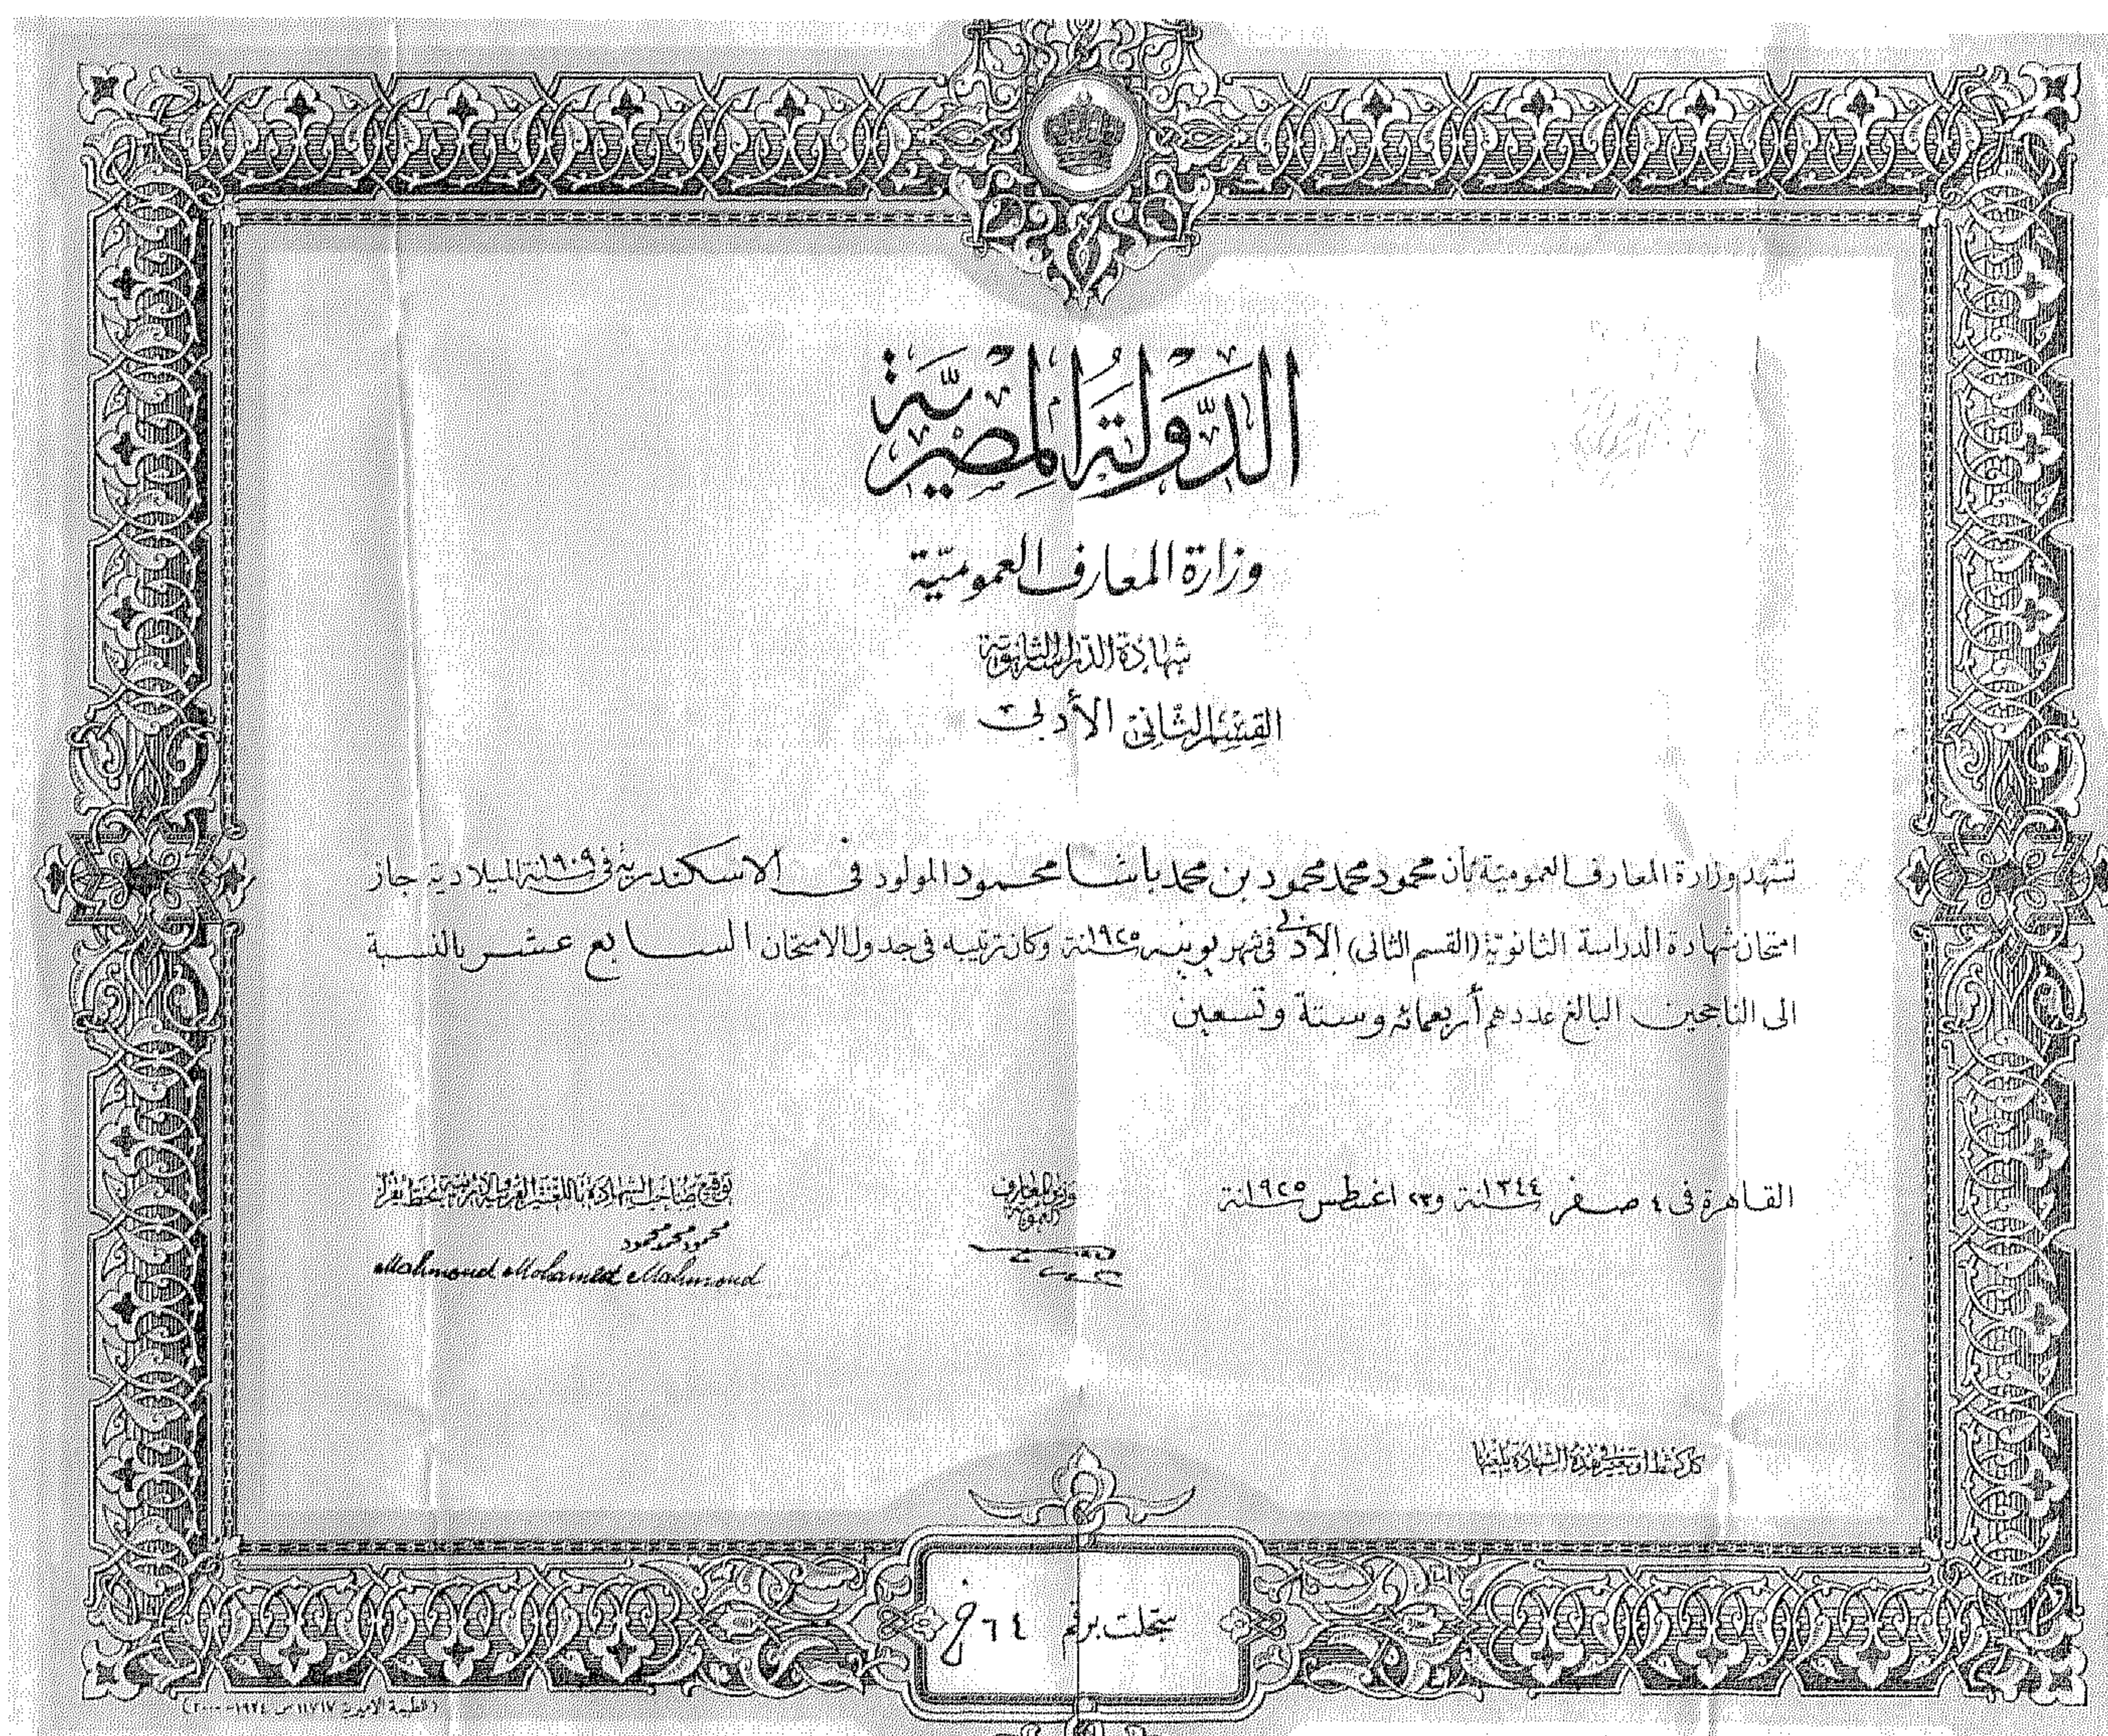 الدَّولَةُ المِصْريَّة
وزارة المعارف العموميّة
شهادة الدراسة الثانوية
القسم الثانى الأدبى
تشهد وزارة المعارف العمومية بأن محمود محمد محمود بن محمد باشا محمود المولود فى الاسكندرية فى سنة ١٩٠٩ الميلادية جاز
امتحان شهادة الدراسة الثانوية (القسم الثانى) الأدبى فى شهر يونيه سنة ١٩٢٥ وكان ترتيبه فى جدول الامتحان السابع عشر بالنسبة
الى الناجحين البالغ عددهم أربعمائة وستة وتسعين
القاهرة فى ٤ صفر سنة ١٣٤٤ و٢٣ اغسطس سنة ١٩٢٥
وزير المعارف
العمومية
توقيع صاحب الشهادة باللغتين العربية والافرنجية بخط يقرأ
محمود محمد محمود
Mahmoud Mohamed Mahmoud
كل كشط او تغيير فى هذه الشهادة يلغيها
سجلت برقم ٦٤ خ
(المطبعة الاميرية ١١٧١٧ س ١٩٢٤-٢٠٠٠)